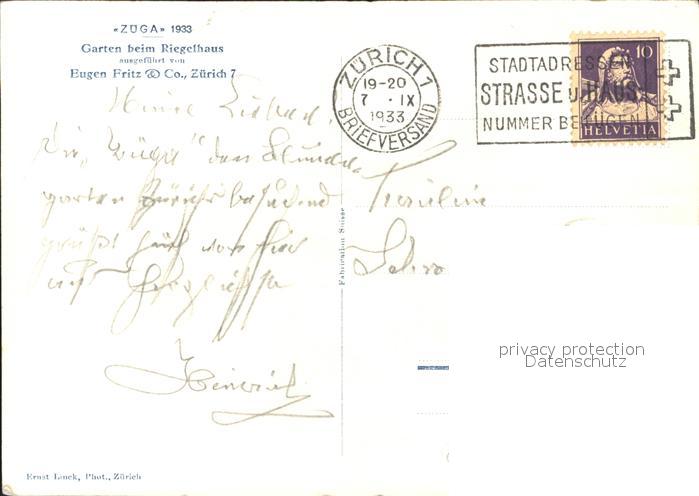 «ZÜGA» 1933
Garten beim Riegelhaus
ausgeführt von
Eugen Fritz & Co., Zürich 7
ZÜRICH 1
19-20
7. IX
1933
BRIEFVERSAND
STADTADRESSEN
STRASSE u. HAUS-
NUMMER BEIFÜGEN
10
HELVETIA
Die „Züga" den
garten Zürichs
grüßt von hier
Heinrich
Fräulein
Fabrication Suisse
privacy protection
Datenschutz
Ernst Linck, Phot., Zürich